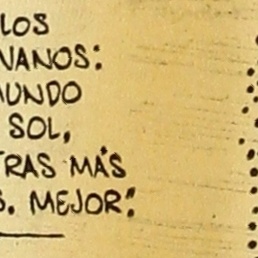 LOS
VANOS:
MUNDO
SOL,
TRAS MÁS
S. MEJOR!